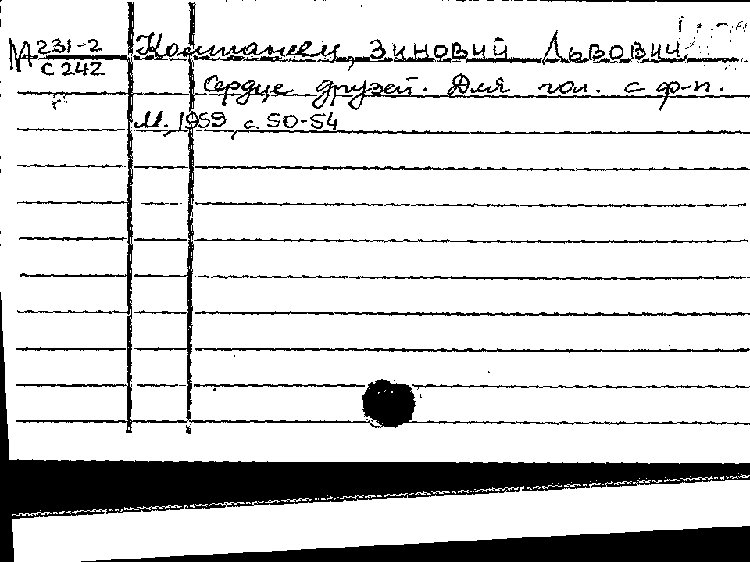 М 231-2 Компанеец, Зиновий Львович
С 242
Сердце друзей. Для гол. с ф-п.
М., 1959, с. 50-54